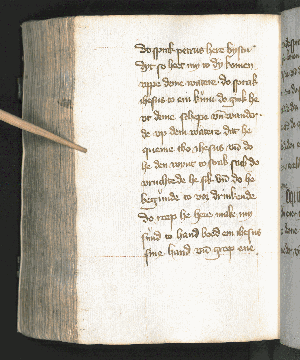 do sprak petrus here bystu
dyt so het my to dy komen
vppe deme watere do sprak
ihesus to em kum do gink he
vt deme schepe vn wander
he vp dem watere dat he
queme tho ihesus vnd do
he den wint so stark sach do
vruchtede he sik vnd do he
begunde to vordrinkende
do reep he here make my
sund to hand boed em ihesus
sine hand vnd greep ene